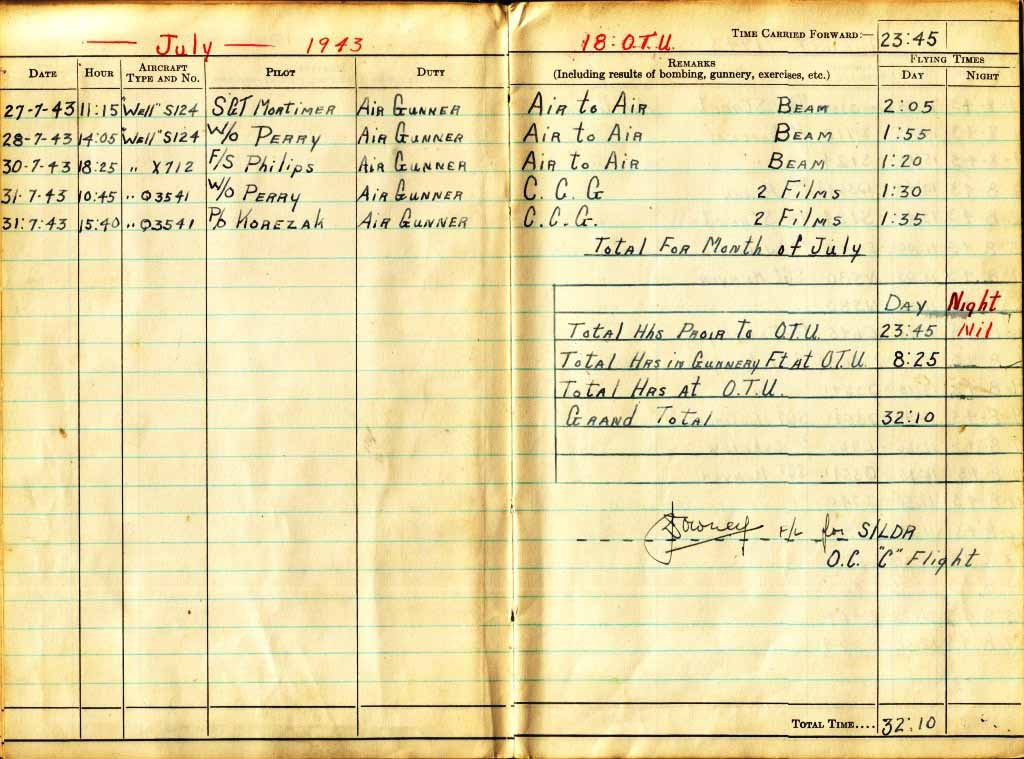 July 1943
18: O.T.U. TIME CARRIED FORWARD:— 23:45
DATE HOUR AIRCRAFT TYPE AND No. PILOT DUTY REMARKS (Including results of bombing, gunnery, exercises, etc.) FLYING TIMES DAY NIGHT
27-7-43 11:15 "Well" S124 SGT Mortimer Air Gunner Air to Air Beam 2:05
28-7-43 14:05 "Well" S124 W/o Perry Air Gunner Air to Air Beam 1:55
30-7-43 18:25 " X712 F/S Philips Air Gunner Air to Air Beam 1:20
31-7-43 10:45 " Q3541 W/o Perry Air Gunner C.C.G 2 Films 1:30
31:7-43 15:40 " Q3541 P/o Korezak Air Gunner C.C.G. 2 Films 1:35
Total For Month of July
Day Night
Total Hrs Proir to O.T.U. 23:45 Nil
Total Hrs in Gunnery Ft at O.T.U. 8:25
Total Hrs at O.T.U.
Grand Total 32:10
F/L for S/LDR
O.C. "C" Flight
TOTAL TIME.... 32:10